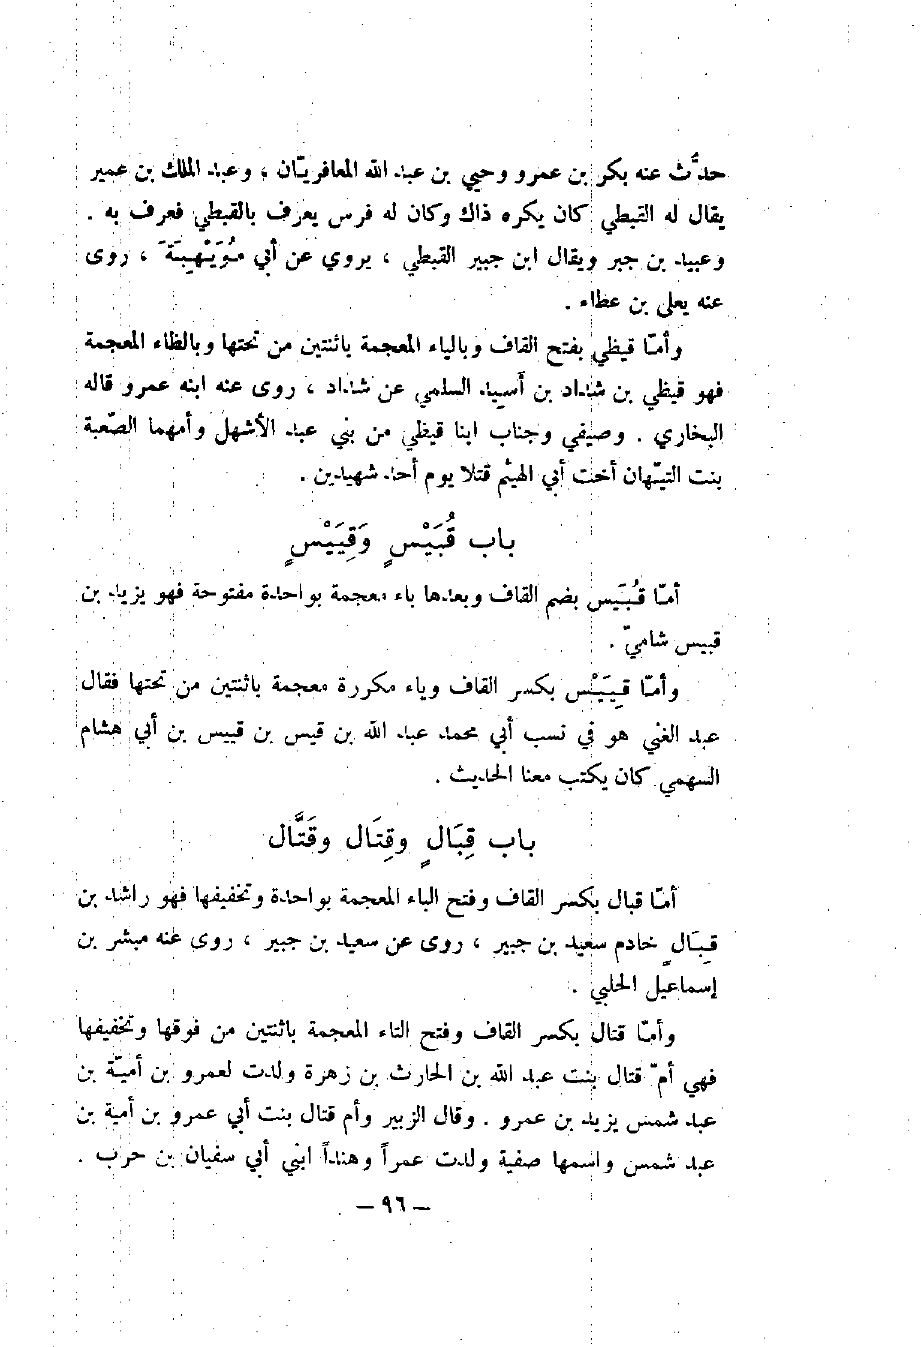 حدّث عنه بكر بن عمرو وحيي بن عبد الله المعافريّان ، وعبد الملك بن عمير
يقال له القبطي كان يكره ذاك وكان له فرس يعرف بالقبطي فعرف به .
وعبيد بن جبر ويقال ابن جبير القبطي ، يروي عن أبي مُوَيْهِبَةَ ، روى
عنه يعلى بن عطاء .
وأمّا قيظي بفتح القاف وبالياء المعجمة باثنتين من تحتها وبالظاء المعجمة
فهو قيظي بن شداد بن أسيد السلمي عن شداد ، روى عنه ابنه عمرو قاله
البخاري . وصيفي وجناب ابنا قيظي من بني عبد الأشهل وأمهما الصّعبة
بنت التيّهان أخت أبي الهيثم قتلا يوم أحد شهيدين .
باب قُبَيْسٍ وَقِيَيْسٍ
أمّا قُبَيَس بضم القاف وبعدها باء معجمة بواحدة مفتوحة فهو يزيد بن
قبيس شاميّ .
وأمّا قِيَيْس بكسر القاف وياء مكررة معجمة باثنتين من تحتها فقال
عبد الغني هو في نسب أبي محمد عبد الله بن قيس بن قييس بن أبي هشام
السهمي كان يكتب معنا الحديث .
باب قِبَالٍ وقِتَال وقَتَّال
أمّا قبال بكسر القاف وفتح الباء المعجمة بواحدة وتخفيفها فهو راشد بن
قِبَالٍ خادم سعيد بن جبير ، روى عن سعيد بن جبير ، روى عنه مبشر بن
إسماعيل الحلبي .
وأمّا قتال بكسر القاف وفتح التاء المعجمة باثنتين من فوقها وتخفيفها
فهي أمّ قتال بنت عبد الله بن الحارث بن زهرة ولدت لعمرو بن أميّة بن
عبد شمس يزيد بن عمرو . وقال الزبير وأم قتال بنت أبي عمرو بن أمية بن
عبد شمس واسمها صفية ولدت عمراً وهنداً ابني أبي سفيان بن حرب .
– ٩٦ –